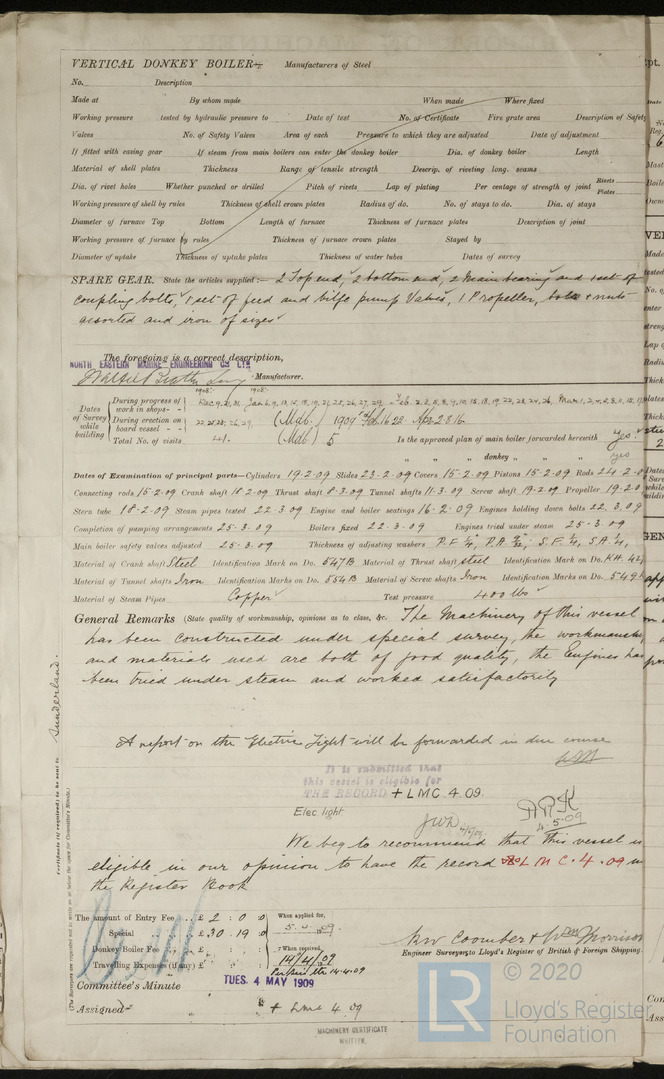 VERTICAL DONKEY BOILER— Manufacturers of Steel
No. Description
Made at By whom made When made Where fixed
Working pressure tested by hydraulic pressure to Date of test No. of Certificate Fire grate area Description of Safety
Valves No. of Safety Valves Area of each Pressure to which they are adjusted Date of adjustment
If fitted with easing gear If steam from main boilers can enter the donkey boiler Dia. of donkey boiler Length
Material of shell plates Thickness Range of tensile strength Descrip. of riveting long. seams
Dia. of rivet holes Whether punched or drilled Pitch of rivets Lap of plating Per centage of strength of joint Rivets Plates
Working pressure of shell by rules Thickness of shell crown plates Radius of do. No. of stays to do. Dia. of stays
Diameter of furnace Top Bottom Length of furnace Thickness of furnace plates Description of joint
Working pressure of furnace by rules Thickness of furnace crown plates Stayed by
Diameter of uptake Thickness of uptake plates Thickness of water tubes Dates of survey
SPARE GEAR. State the articles supplied:— 2 Top end, 2 bottom end, 2 Main bearing and 1 set of
coupling bolts, 1 set of feed and bilge pump Valves, 1 Propeller, bolts & nuts
assorted and iron of sizes
The foregoing is a correct description,
NORTH EASTERN MARINE ENGINEERING CO LTD
Manufacturer.
1908 1908
Dates of Survey while building
During progress of work in shops - - Dec. 9, 21, 31, Jan 6, 9,
During erection on board vessel - - 22, 23, 25, 26, 29, (Mdb.) 1909 Feb 16 22 Apr 2 8 16
Total No. of visits 41. (Mdb) 5 Is the approved plan of main boiler forwarded herewith yes.
" " " donkey " " yes
Dates of Examination of principal parts—Cylinders 19.2.09 Slides 23.2.09 Covers 15.2.09 Pistons 15.2.09 Rods 24.2.0
Connecting rods 15.2.09 Crank shaft 18.2.09 Thrust shaft 8.2.09 Tunnel shafts 11.3.09 Screw shaft 19.2.09 Propeller 19.2.0
Stern tube 18.2.09 Steam pipes tested 22.3.09 Engine and boiler seatings 16.2.09 Engines holding down bolts 22.3.09
Completion of pumping arrangements 25.3.09 Boilers fixed 22.3.09 Engines tried under steam 25.3.09
Main boiler safety valves adjusted 25.3.09 Thickness of adjusting washers
Material of Crank shaft Steel Identification Mark on Do. 547B Material of Thrust shaft steel Identification Mark on Do. KH.
Material of Tunnel shafts Iron Identification Marks on Do. 554B Material of Screw shafts Iron Identification Marks on Do. 549
Material of Steam Pipes Copper Test pressure 400 lbs
General Remarks (State quality of workmanship, opinions as to class, &c. The Machinery of this vessel
has been constructed under special survey, the workmanship
and materials used are both of good quality, the Engines has
been tried under steam and worked satisfactorily
A report on the Electric Light will be forwarded in due course
It is submitted that
this vessel is eligible for
THE RECORD + LMC 4.09.
Elec light.
4.5.09
We beg to recommend that this vessel is
eligible in our opinion to have the record L M C. 4.09 in
the Register Book
Certificate (if required) to be sent to Sunderland.
(The Surveyors are requested not to write on or below the space for Committee's Minute.)
The amount of Entry Fee .. £ 2 : 0 : 0 When applied for,
Special £ 30 . 19 : 0 5.4.09.
Donkey Boiler Fee £ : : When received,
Travelling Expenses (if any) £ : : 14/4/09
Committee's Minute TUES. 4 MAY 1909
Assigned + LMC 4.09
Engineer Surveyors to Lloyd's Register of British & Foreign Shipping.
MACHINERY CERTIFICATE
WRITTEN.
© 2020
LR
Lloyd's Register
Foundation